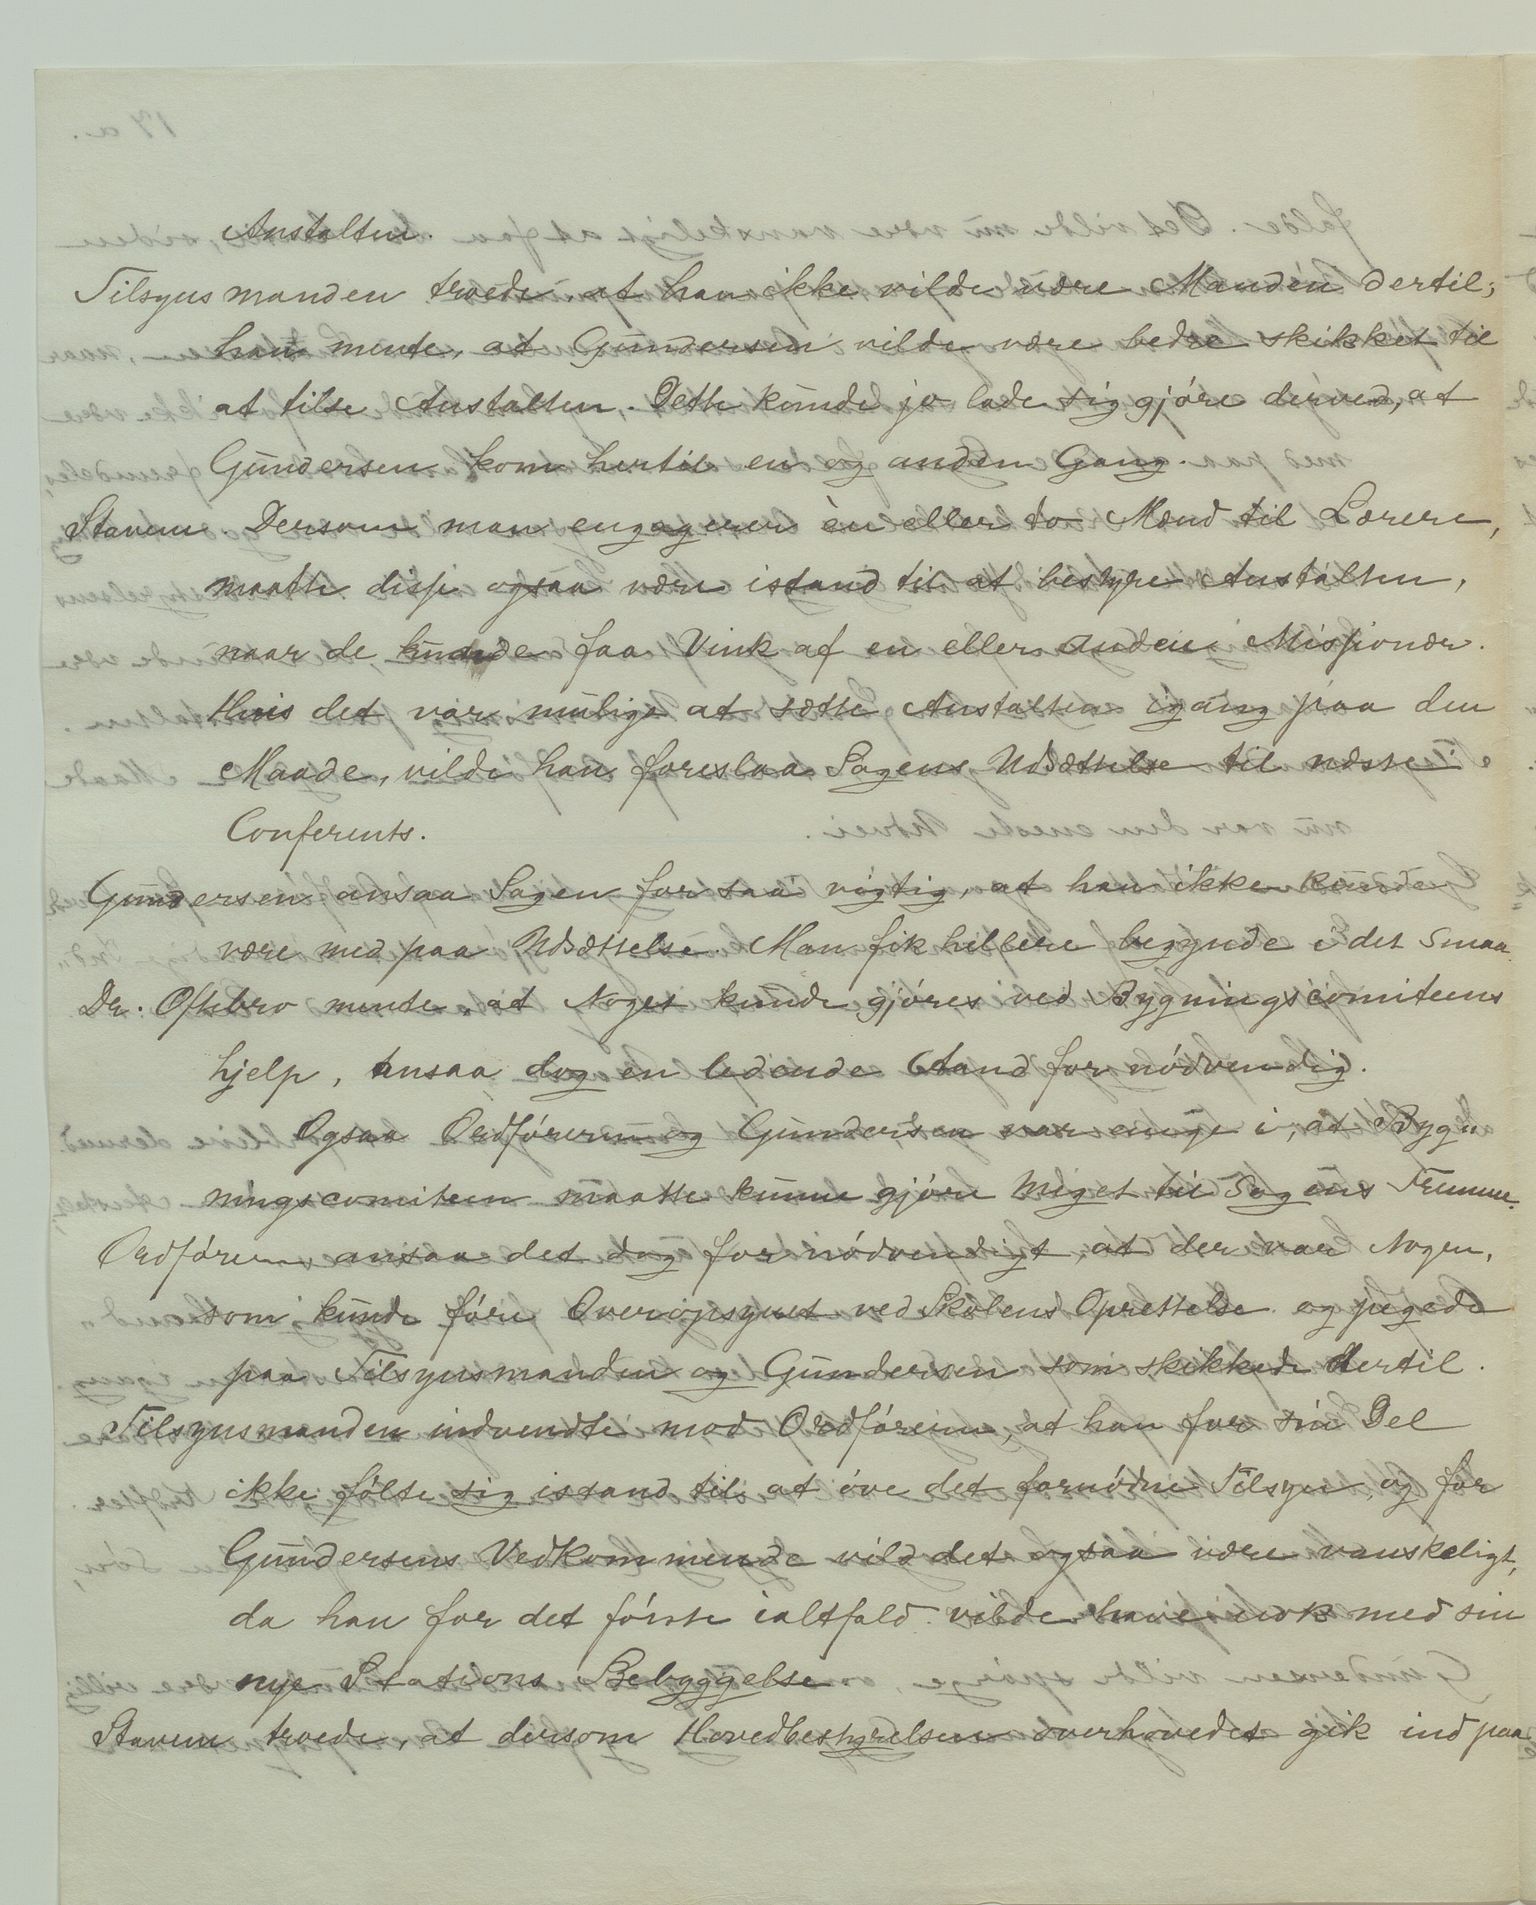 Anstalten.
Tilsynsmanden troede, at han ikke vilde være Manden dertil;
han mente, at Gundersen vilde være bedre skikket til
at tilse Anstalten. Dette kunde jo lade sig gjøre derved, at
Gundersen kom hertil en og anden Gang.
Stavem. Dersom man engagerer èn eller to Mænd til Lærere,
maatte disse ogsaa være istand til at bestyre Anstalten,
naar de kunde faa Vink af en eller anden Missionær.
Hvis det var muligt at sætte Anstalten igang paa den
Maade, vilde han foreslaa Sagens Udsættelse til næste
Conferents.
Gundersen ansaa Sagen for saa vigtig, at han ikke kunde
være med paa Udsættelse. Man fik hellere begynde i det Smaa.
Dr. Oftebro mente, at Noget kunde gjøres ved Bygningscomiteens
hjelp, ansaa dog en ledende Aand for nødvendig.
Ogsaa Ordføreren og Gundersen var enige i, at Byg-
ningscomiteen maatte kunne gjøre Meget til Sagens Fremme.
Ordføreren ansaa det dog for nødvendigt, at der var Nogen,
som kunde føre Overopsynet ved Skolens Oprettelse og pegede
paa Tilsynsmanden og Gundersen som skikkede dertil.
Tilsynsmanden indvendte mod Ordføreren, at han for sin Del
ikke følte sig istand til at øve det fornødne Tilsyn, og for
Gundersens Vedkommende vild det ogsaa være vanskeligt,
da han for det første ialtfald vilde have nok med sin
nye Stations Bebyggelse
Stavem troede, at dersom Hovedbestyrelsen overhovedet gik ind paa